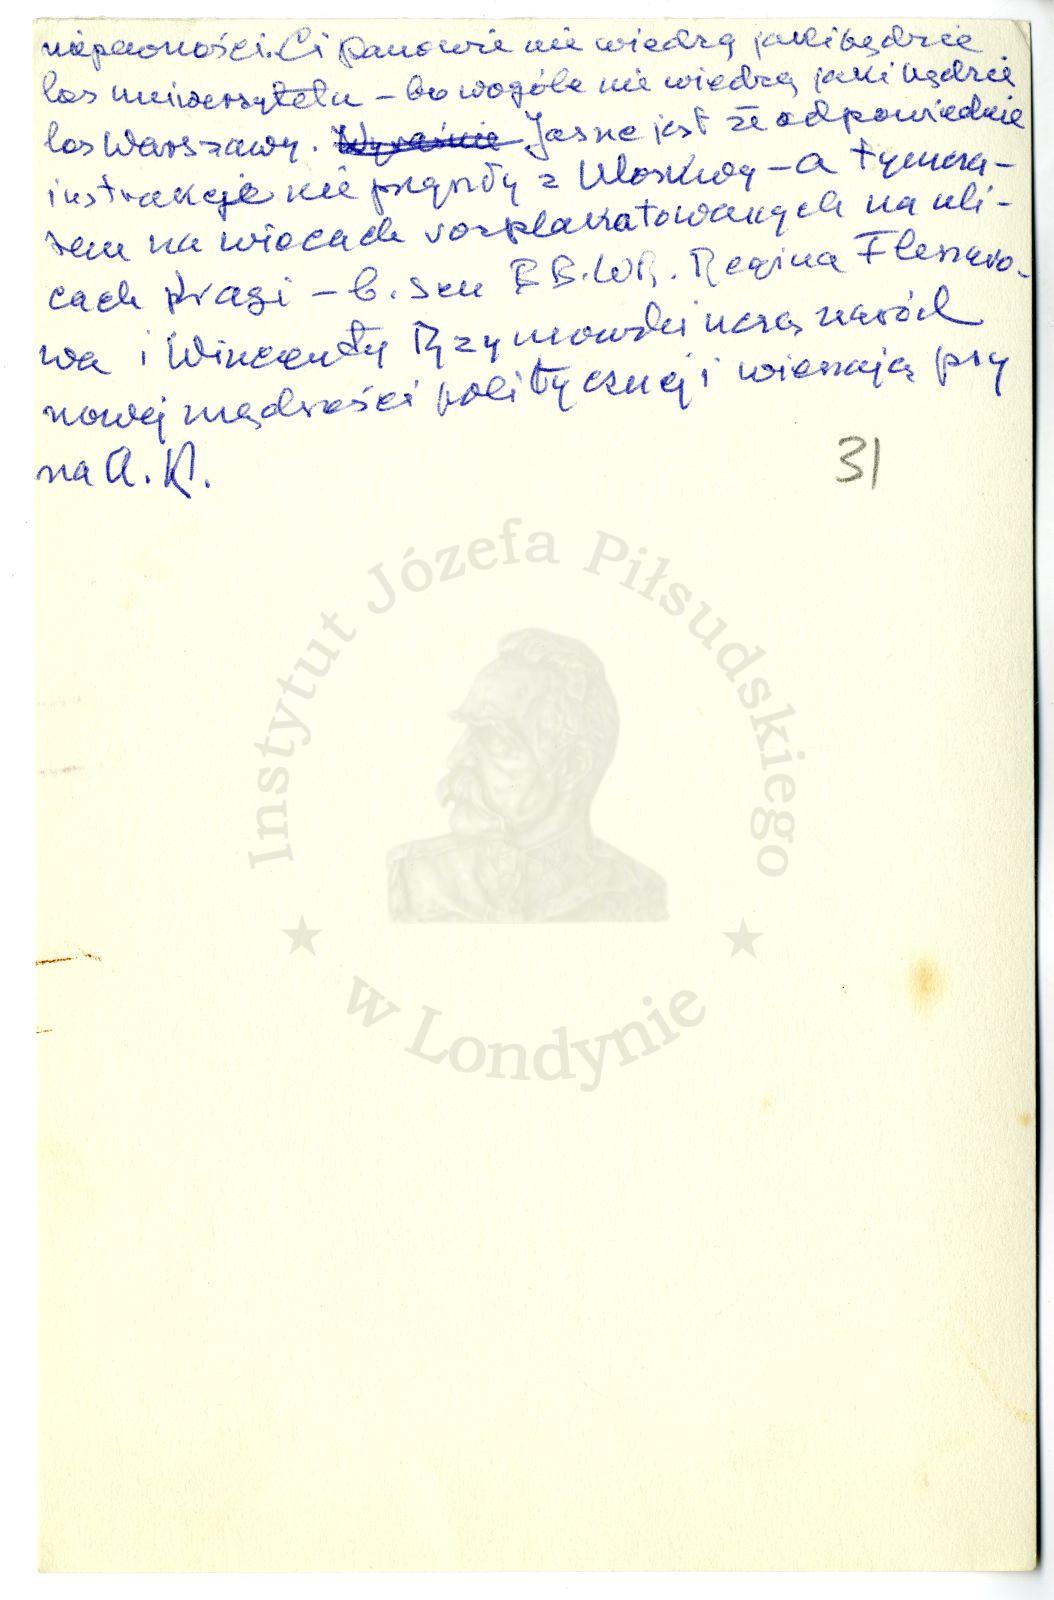 niepewności. Ci panowie nie wiedzą jaki będzie
los uniwersytetu – bo wogóle nie wiedzą jaki będzie
los Warszawy. Wyraźnie Jasne jest że odpowiednie
instrukcje nie przyszły z Moskwy – a tymcza-
sem na wiecach rozplakatowanych na uli-
cach Pragi – b. sen B.B.W.R. Regina Fleszaro-
wa i Wincenty Rzymowski uczą naród
nowej mądrości politycznej i wieszają psy
na A.K.
31
Instytut Józefa Piłsudskiego
★ w Londynie ★